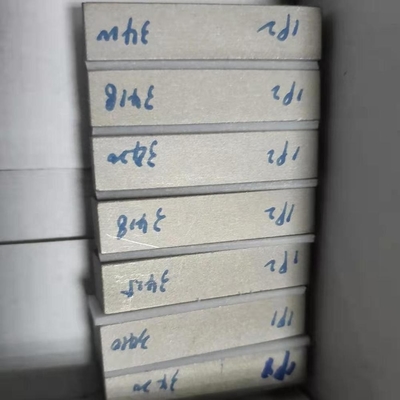 1P2
3418 1P2
3420 1P2
3418 1P2
3425 1P2
3420 1P1
3420